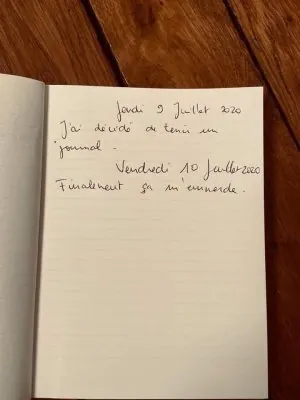 Jeudi 9 Juillet 2020
J'ai décidé de tenir un
journal.
Vendredi 10 Juillet 2020
Finalement ça m'emmerde.